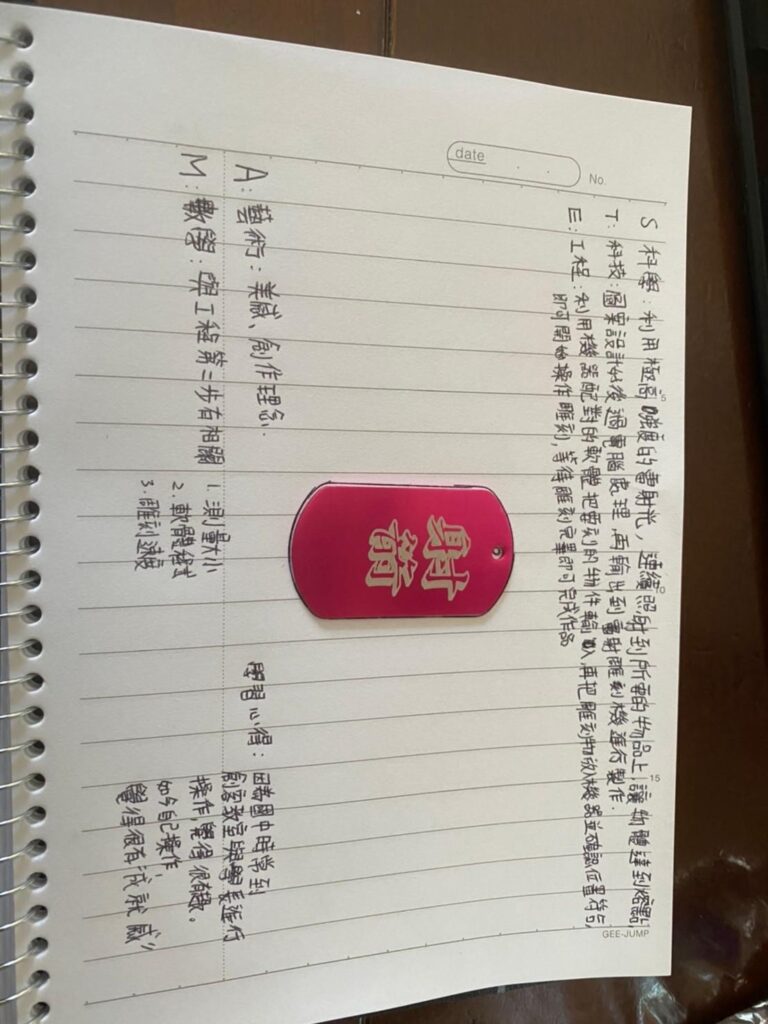 date
No.
S 科學：利用極高強度的雷射光，連續照射到所需的物品上讓物體達到熔點
T：科技：圖案設計以後過電腦處理 再輸出到雷射雕刻機進行製作.
E：工程：利用機器配對的軟體把要刻的物件輸入再把雕刻物放入機器並確認位置符合,
即可開始操作雕刻，等待雕刻完畢即可完成作品
5
10
15
射箭
A：藝術：美感、創作理念.
M：數學：與工程第二步有相關
1.測量大小
2.軟體程式
3.雕刻速度
學習心得：
因為國中時常到
創客教室與學長進行
操作，覺得很有趣。
如今自己操作，
覺得很有成就感”
GEE-JUMP